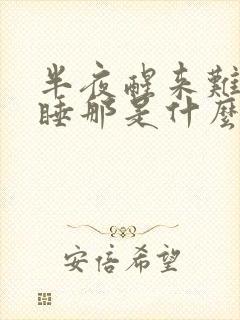 半夜醒来難
睡那是什麼
安倍希望